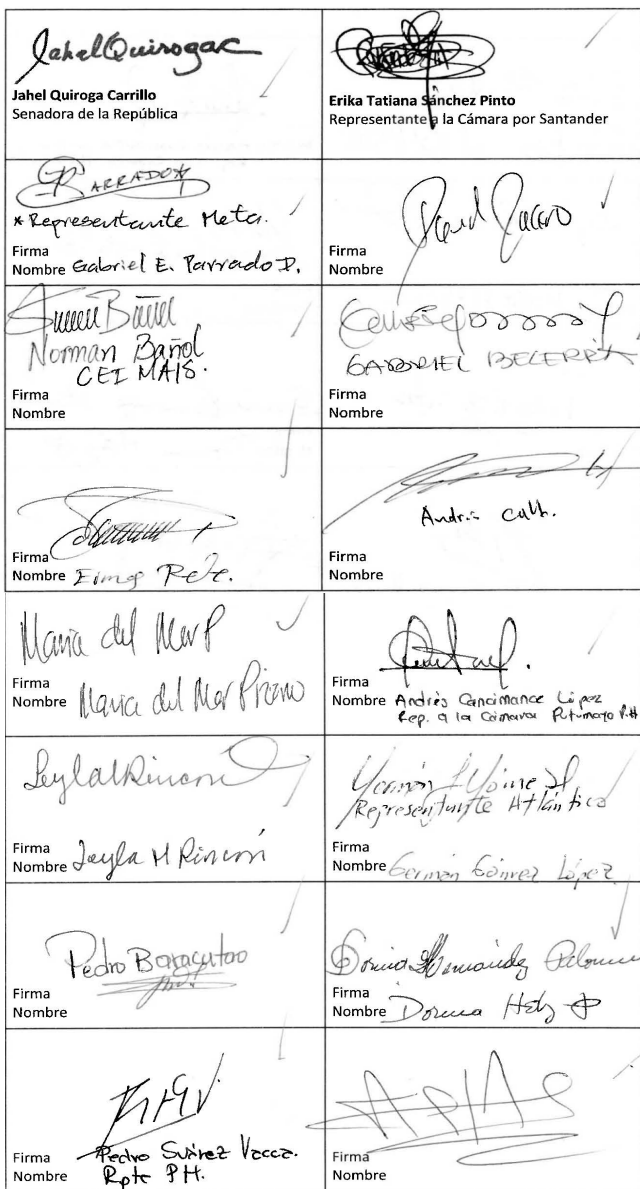 JahelQuirogac
Jahel Quiroga Carrillo
Senadora de la República
Erika Tatiana Sánchez Pinto
Representante a la Cámara por Santander
PARRADO
*Representante Meta.
Firma
Nombre Gabriel E. Parrado D.
David Racero
Firma
Nombre
Norman Bañol
CEI MAIS.
Firma
Nombre
GABRIEL BECERRA
Firma
Nombre
Firma
Nombre
Andrés
Firma
Nombre
Maria del Mar P
Firma
Nombre Maria del Mar Pizarro
Firma
Nombre Andrés Cancimance López
Rep. a la Cámara Putumayo P.H
Leyla Rincón
Firma
Nombre Leyla M Rincón
Representante Atlántico
Firma
Nombre Germán Gómez López
Pedro Baracutao
Firma
Nombre
Dorina Hernández Palomino
Firma
Nombre Dorina Hdz P
Pedro Suárez Vacca.
Firma
Nombre Rpte PH.
ARIAS
Firma
Nombre